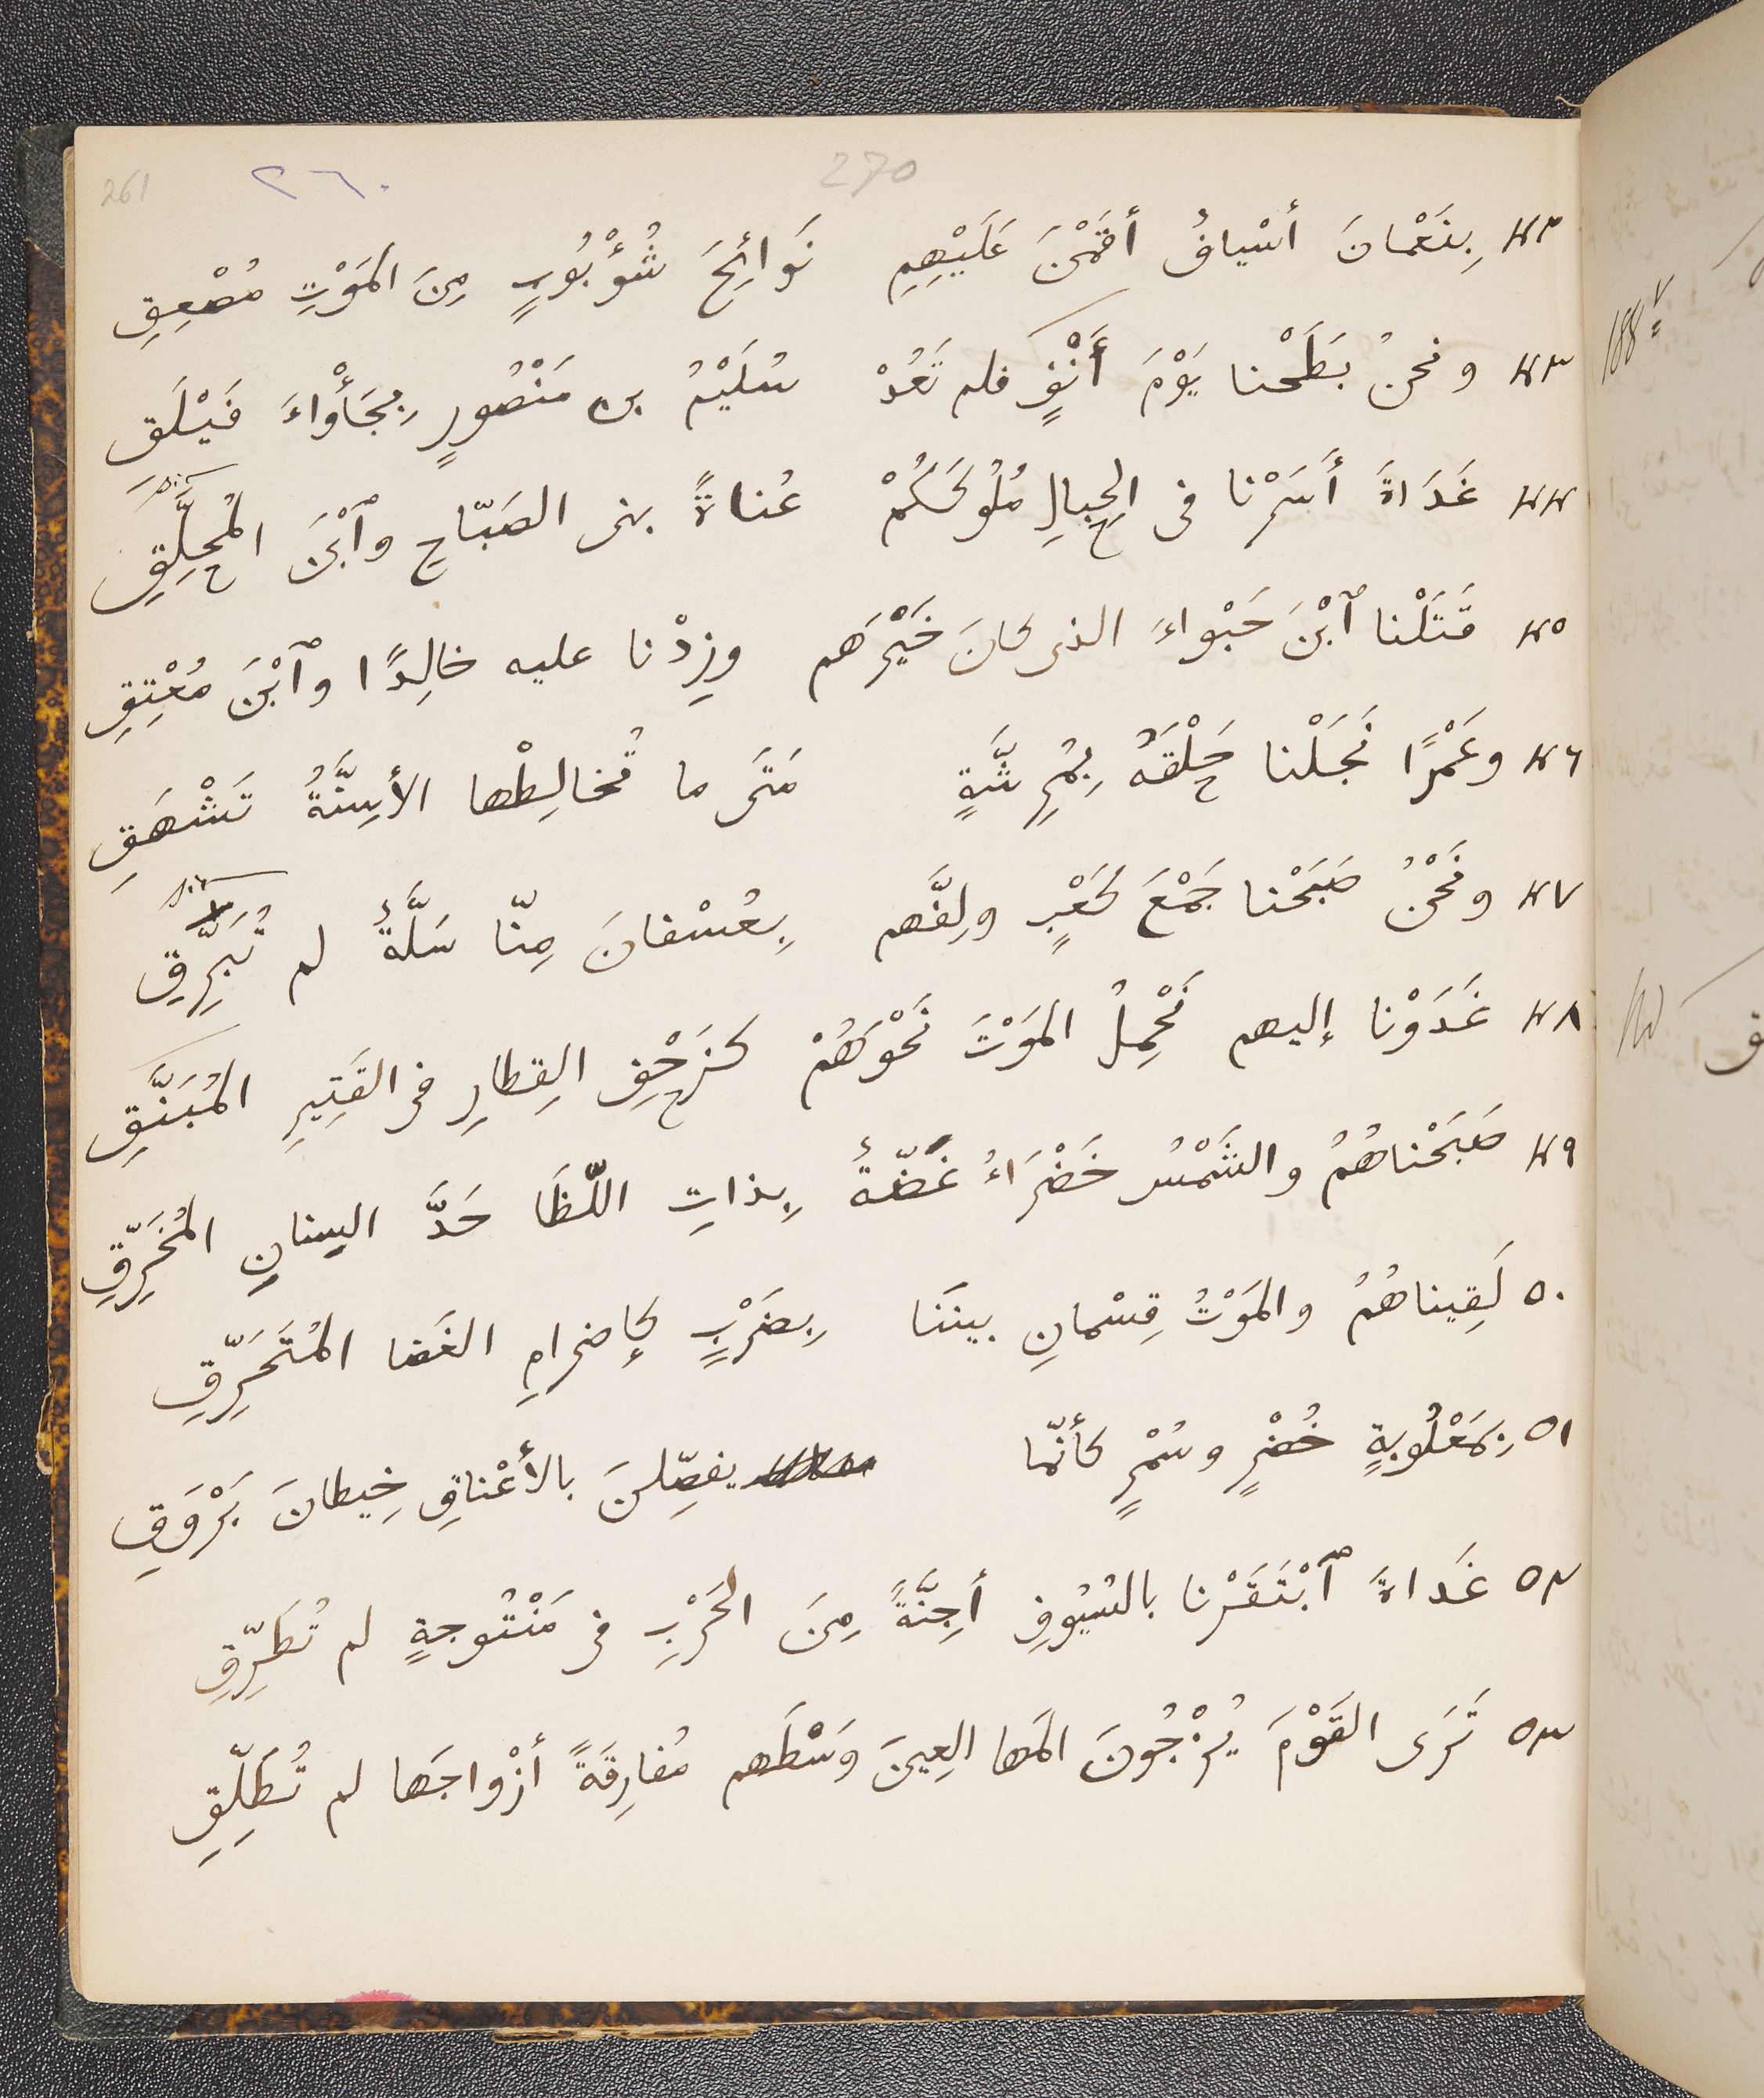 261 ٢٦٠ 270
٤٢ بِنَعْمانَ أسْيافٌ أقَمْنَ عَلَيْهِمِ نَوائِحَ شُؤْبُوبٍ مِنَ المَوْتِ مُصْعِقِ
٤٣ ونحنُ بَطَحْنا يَوْمَ أَنْفٍ فلم تَعُدْ سُلَيْمُ بن مَنْصُورٍ بِجَأْواءَ فَيْلَقِ
٤٤ غَدَاةَ أَسَرْنا فى الحِبالِ مُلُوكَكُمْ عُناةً بنى الصَبّاحِ وٱبْنَ المُحَلِّقِ
٤٥ قَتَلْنا ٱبْنَ حَبْواءَ الذى كانَ خَيْرَهم وزِدْنا عليه خالِدًا وٱبْنَ مُعْتِقِ
٤٦ وعَمْرًا نَجَلْنا حَلْقَهُ بِمُرِشَّةٍ مَتَى ما تُخالِطْها الأسِنَّةُ تَشْهَقِ
٤٧ ونَحْنُ صَبَحْنا جَمْعَ كَعْبٍ ولِفَّهم بِعُسْفانَ مِنّا سَلَّةً لم تُبَرِّقِ
٤٨ غَدَوْنا إليهم نَحْمِلُ المَوْتَ نَحْوَهُمْ كزَحْفِ القِطارِ فى القَتِيرِ المُبَنَّقِ
٤٩ صَبَحْناهُمُ والشَمْسُ خَضْرَاءُ غَضّةٌ بِذاتِ اللّظَا حَدَّ السِنانِ المُخَرِّقِ
٥٠ لَقِيناهُمُ والمَوْتُ قِسْمانِ بينَنا بِضَرْبٍ كإضرامِ الغَضا المُتَحَرِّقِ
٥١ بِمَعْلُوبةٍ خُضْرٍ وسُمْرٍ كأنّما يفصِّلنَ بالأعْناقِ خِيطانَ بَرْوَقِ
٥٢ غَداةَ ٱبْتَقَرْنا بالسُيُوفِ أجِنَّةً مِنَ الحَرْبِ فى مَنْتُوجةٍ لم تُطَرِّقِ
٥٣ تَرَى القَوْمَ يُزْجُونَ المَها العِينَ وَسْطَهم مُفارِقَةً أزْواجَها لم تُطَلَّقِ
188 v